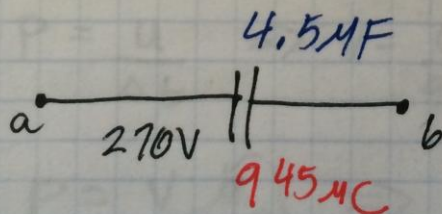 4.5μF
a
270V
b
945μC